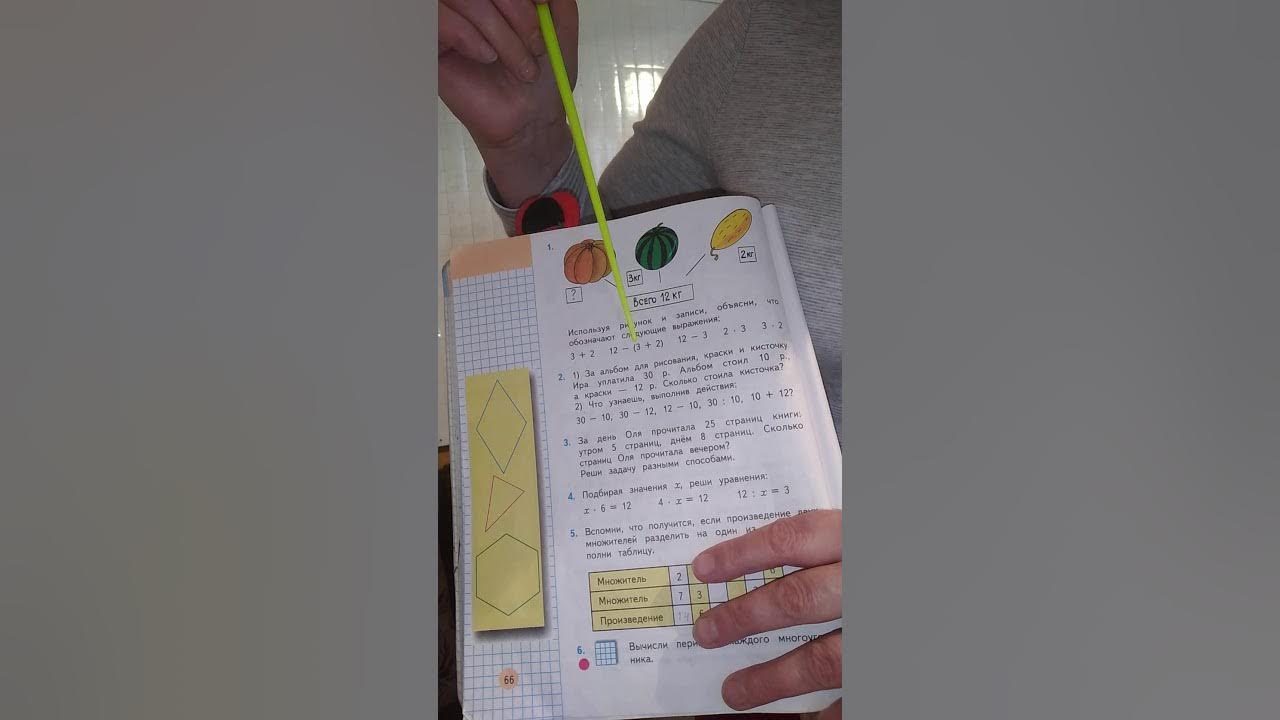 1.
3кг
2кг
?
ВСЕГО 12 КГ
Используя рисунок и записи, объясни, что
обозначают следующие выражения:
3 + 2 12 − (3 + 2) 12 − 3 2 · 3 3 · 2
2. 1) За альбом для рисования, краски и кисточку
Ира уплатила 30 р. Альбом стоил 10 р.,
а краски — 12 р. Сколько стоила кисточка?
2) Что узнаешь, выполнив действия:
30 − 10, 30 − 12, 12 − 10, 30 : 10, 10 + 12?
3. За день Оля прочитала 25 страниц книги:
утром 5 страниц, днём 8 страниц. Сколько
страниц Оля прочитала вечером?
Реши задачу разными способами.
4. Подбирая значения x, реши уравнения:
x · 6 = 12 4 · x = 12 12 : x = 3
5. Вспомни, что получится, если произведение
множителей разделить на один из
полни таблицу.
Множитель 2
Множитель 7 3
Произведение 6
6. Вычисли каждого
ника.
66